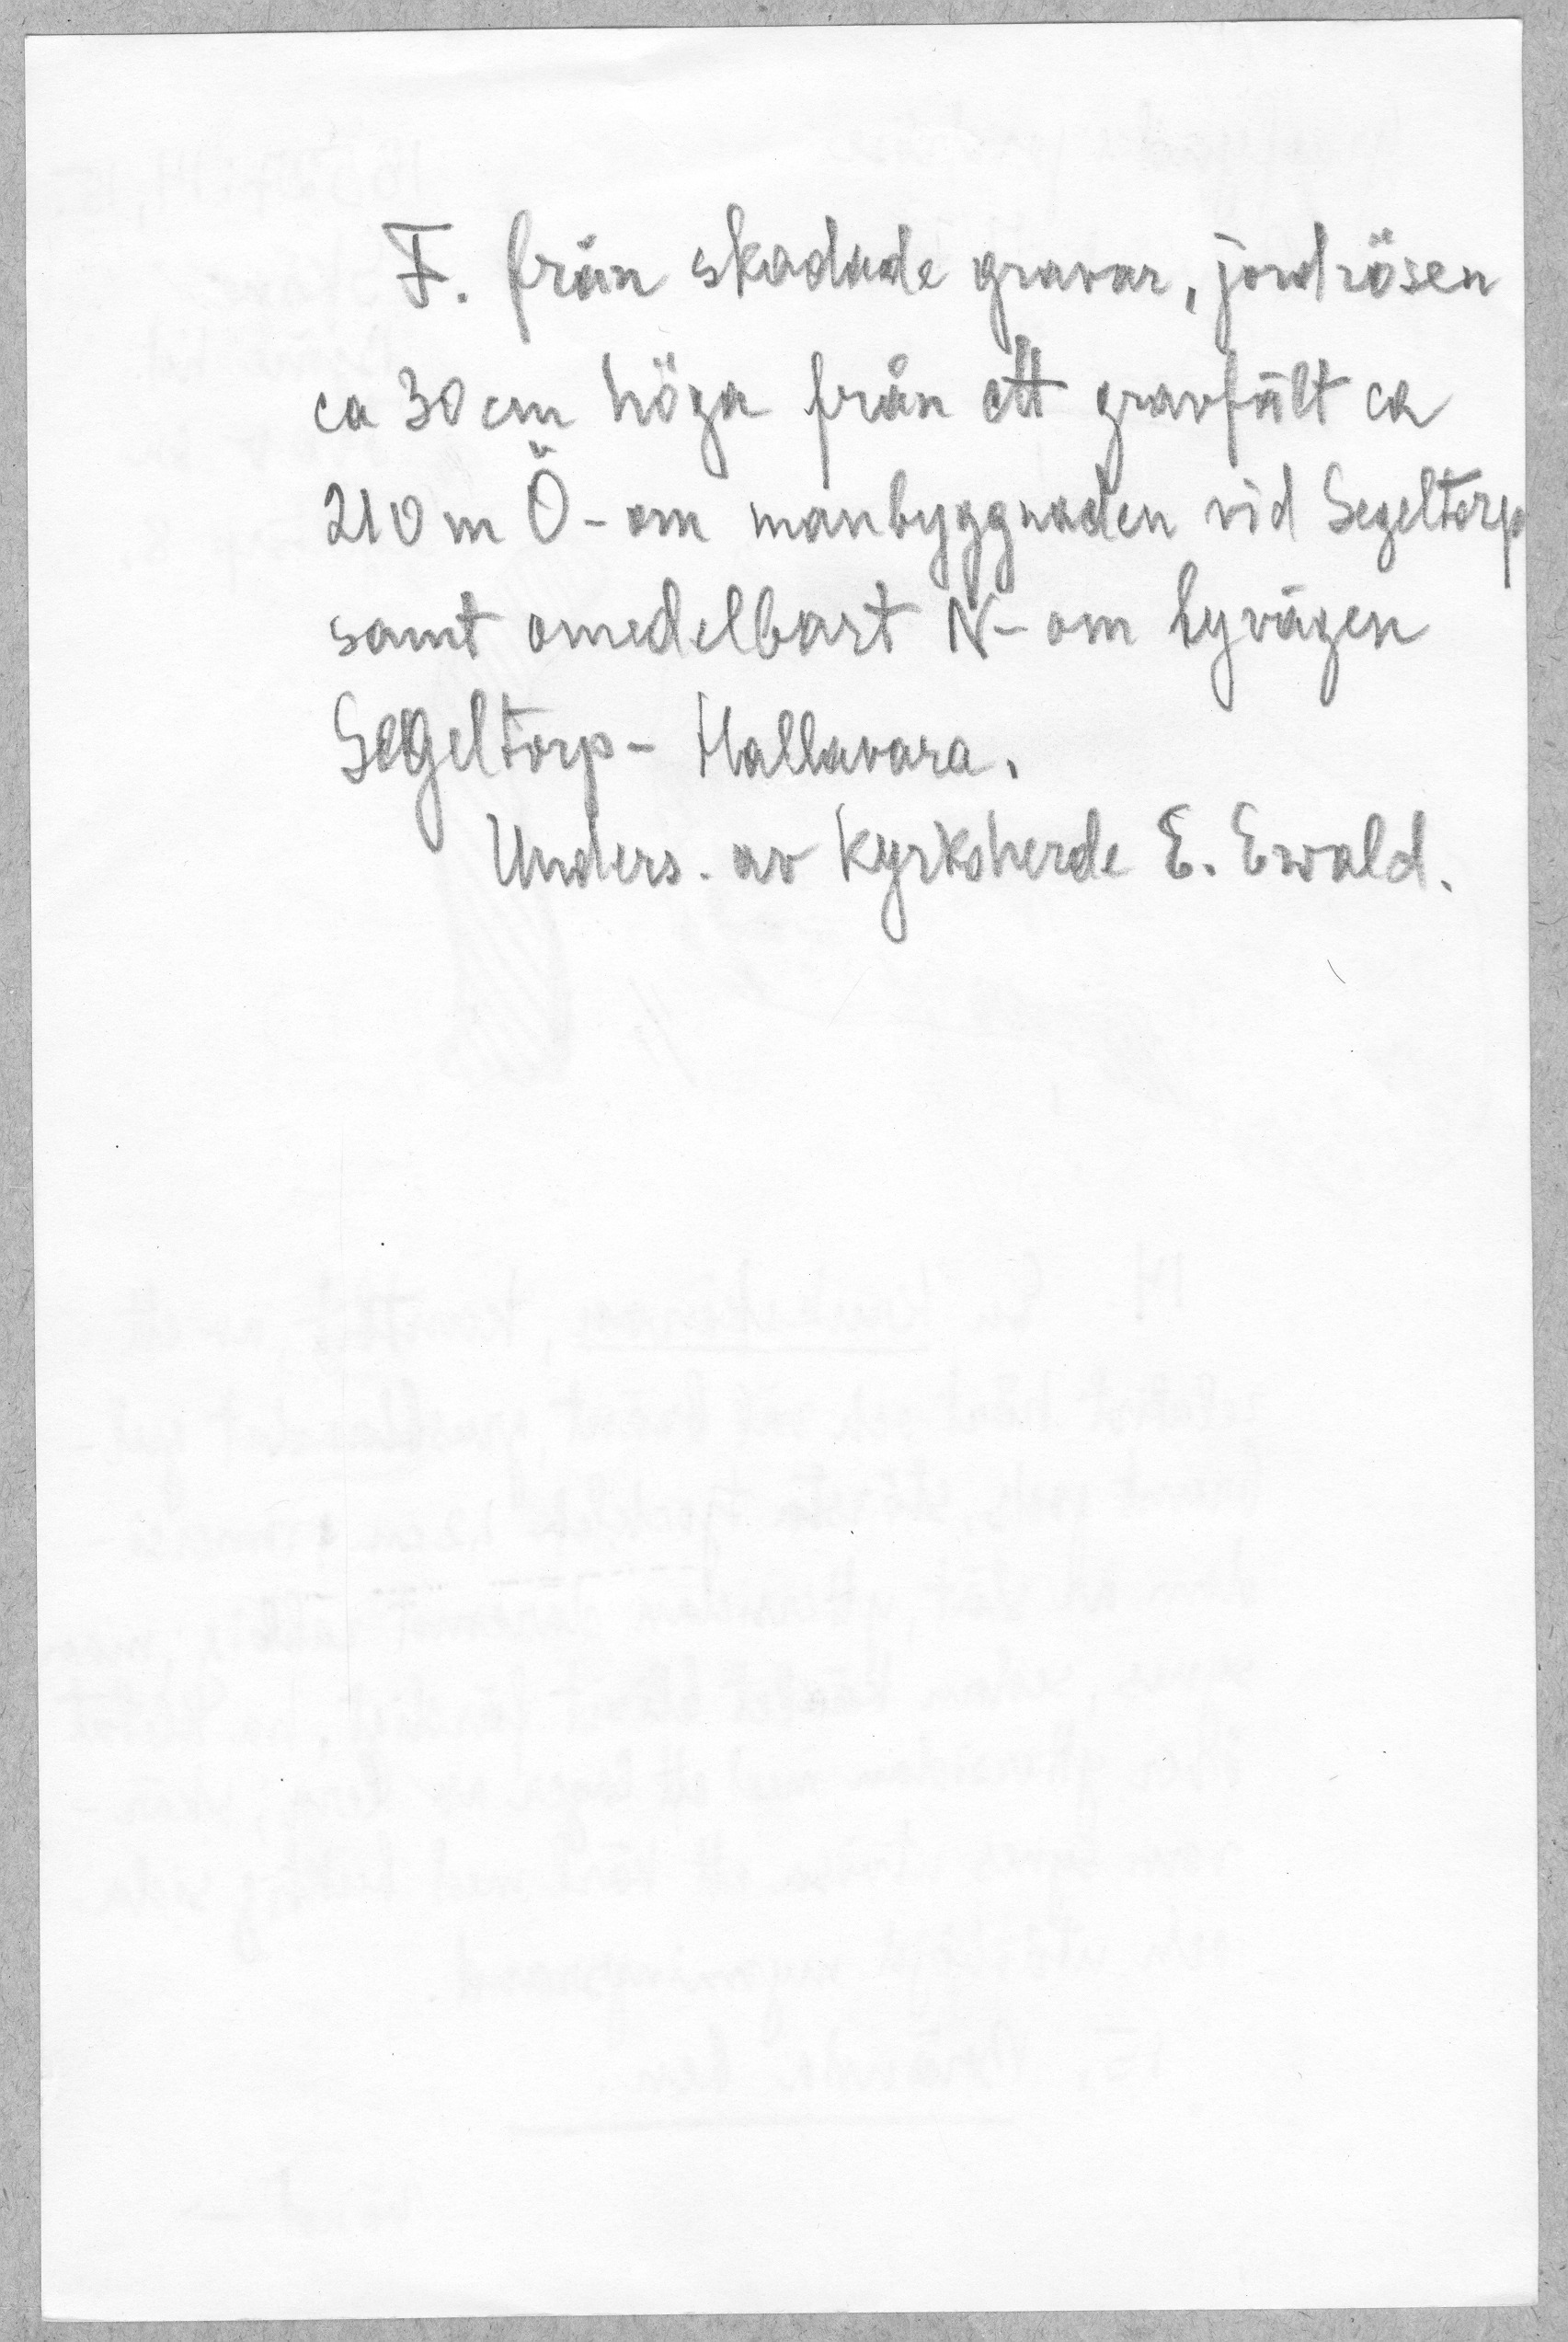 F. från skadade gravar, jordrösen
ca 30 cm höga från ett gravfält ca
210 m Ö-om manbyggnaden vid Segeltorp
samt omedelbart N-om byvägen
Segeltorp- Hallavara.
Unders. av kyrkoherde E. Ewald.